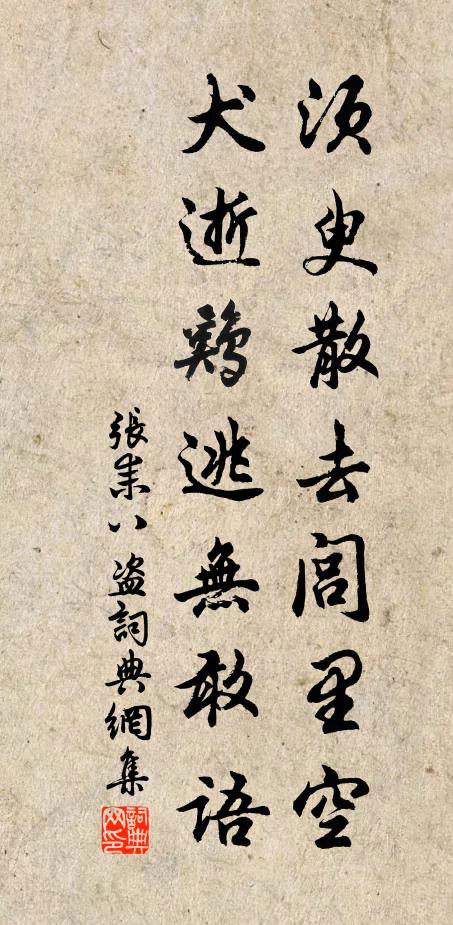 須臾散去閭里空
犬逝鷄逃無敢語
張耒八盗詞典網集
詞典
网印